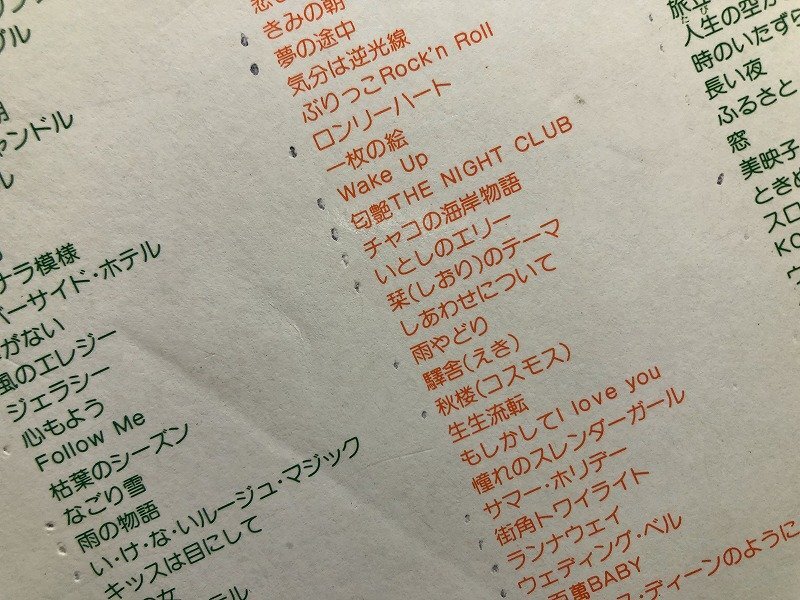 ブル
ャンドル
ナラ模様
バーサイド・ホテル
がない
風のエレジー
ジェラシー
心もよう
Follow Me
枯葉のシーズン
なごり雪
雨の物語
い・け・な・いルージュ・マジック
キッスは目にして
の女
テル
きみの朝
夢の途中
気分は逆光線
ぶりっこRock'n Roll
ロンリーハート
一枚の絵
Wake Up
匂艶THE NIGHT CLUB
チャコの海岸物語
いとしのエリー
栞(しおり)のテーマ
しあわせについて
雨やどり
驛舎(えき)
秋桜(コスモス)
生生流転
もしかしてI love you
憧れのスレンダーガール
サマー・ホリデー
街角トワイライト
ランナウェイ
ウェディング・ベル
百萬BABY
ス・ディーンのように
旅立
人生の空か
時のいたずら
長い夜
ふるさと
窓
美映子
ときめ
スロ
KO